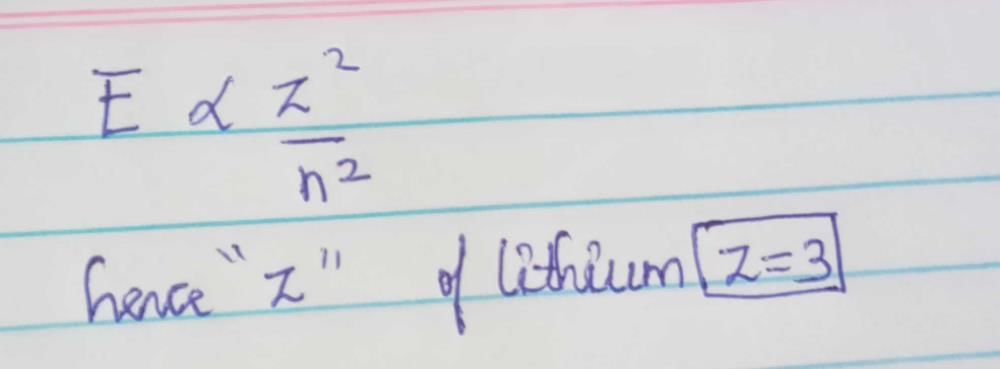 E ∝ z²/n²
hence "z" of lithium z=3